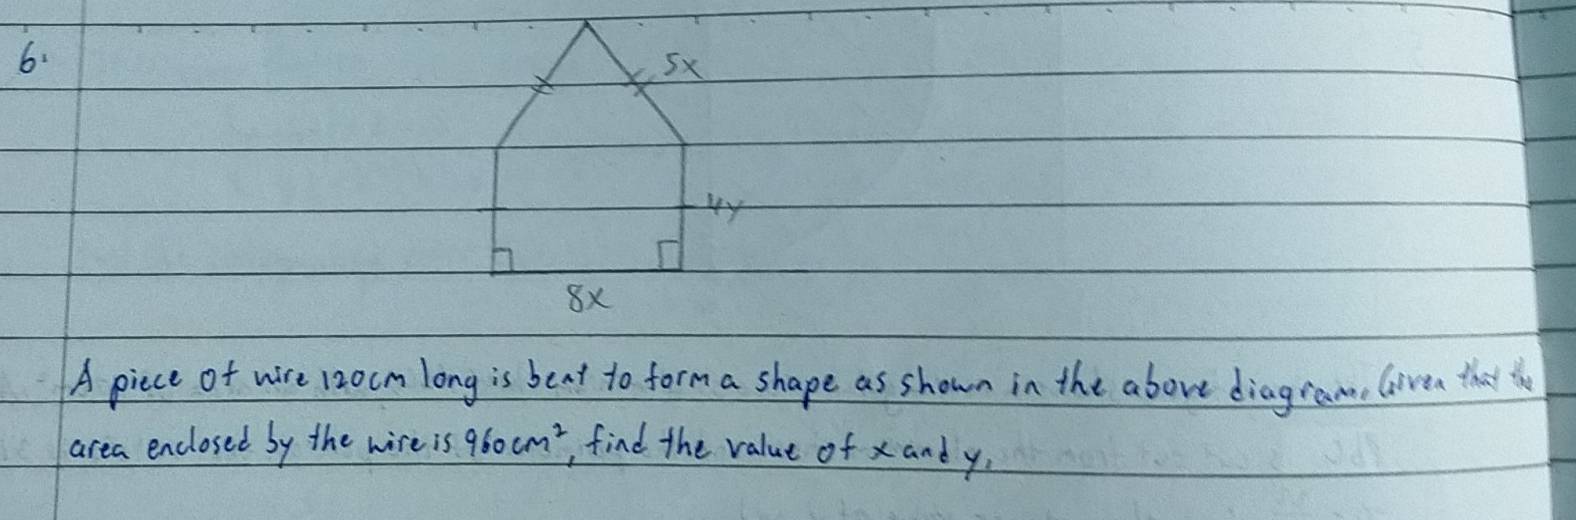 6.
5x
4y
8x
A piece of wire 120cm long is bent to form a shape as shown in the above diagram. Given that the
area enclosed by the wire is 960cm², find the value of x and y.